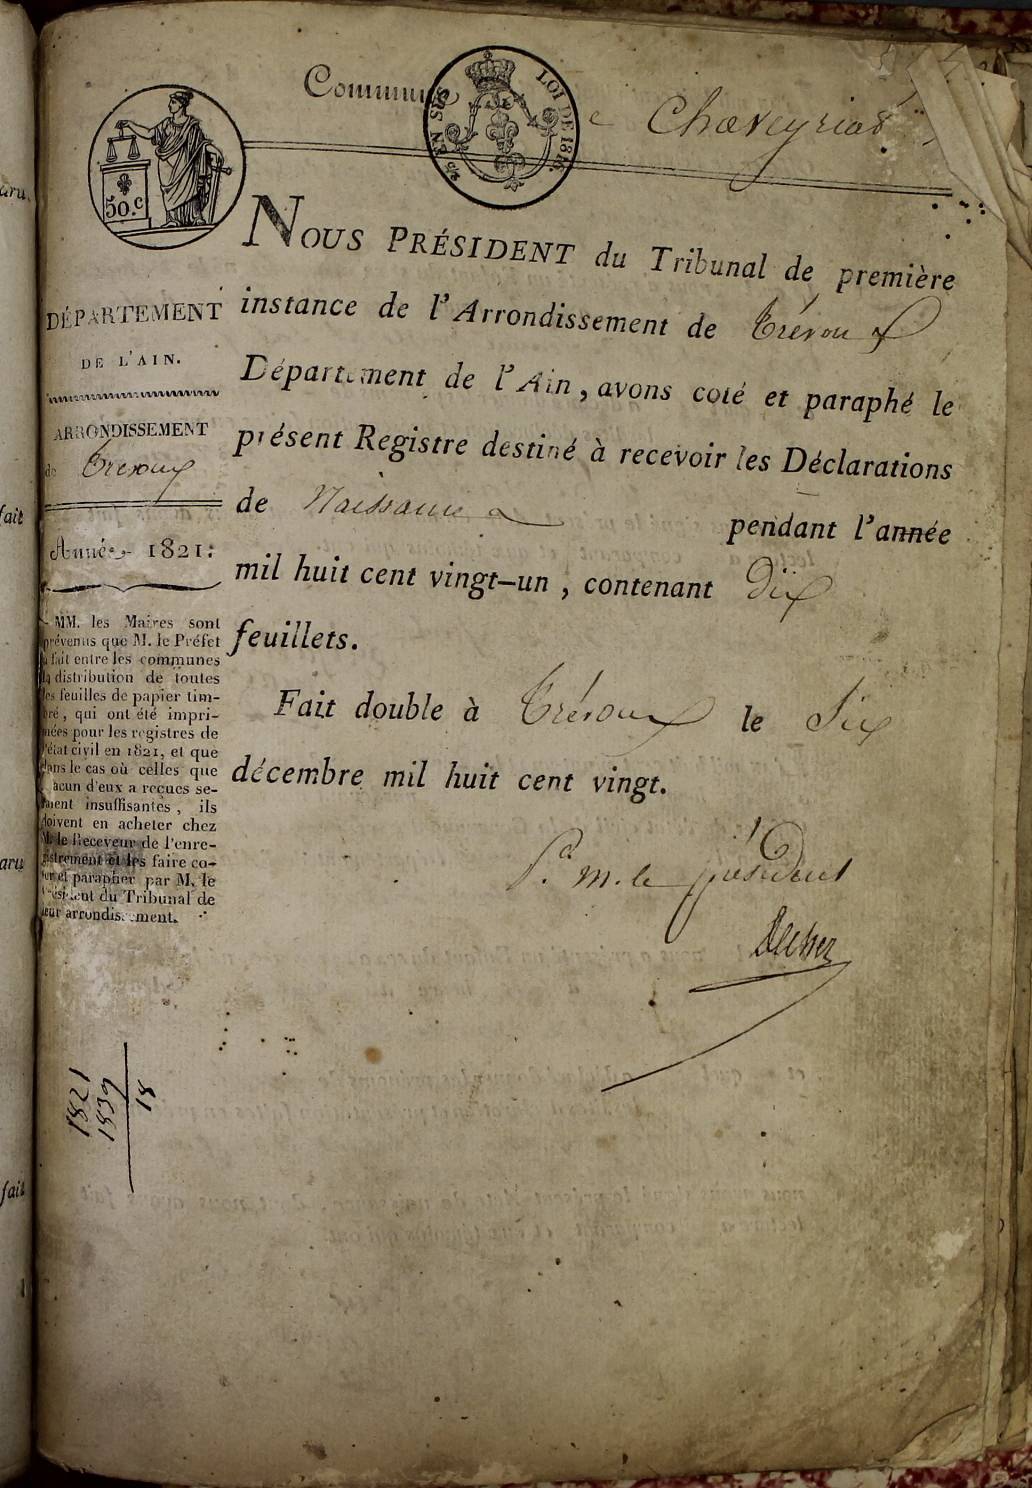 Commune de Chaveyriat
50.c
2/5 EN SUS
LOI DE 1816.
NOUS PRÉSIDENT du Tribunal de première
instance de l'Arrondissement de Trévoux
Département de l'Ain, avons coté et paraphé le
présent Registre destiné à recevoir les Déclarations
de Naissance pendant l'année
mil huit cent vingt-un, contenant Dix
feuillets.
Fait double à Trévoux le Six
décembre mil huit cent vingt.
Pr. M. le président
DÉPARTEMENT
DE L'AIN.
ARRONDISSEMENT
de Trévoux
Année 1821.
MM. les Maires sont
prévenus que M. le Préfet
a fait entre les communes
la distribution de toutes
les feuilles de papier tim-
bré, qui ont été impri-
mées pour les registres de
l'état civil en 1821, et que
dans le cas où celles que
chacun d'eux a reçues se-
raient insuffisantes, ils
doivent en acheter chez
M. le Receveur de l'enre-
gistrement et les faire co-
ter et parapher par M. le
Président du Tribunal de
leur arrondissement.
1821
1839
18
aru
fait
aru
fait